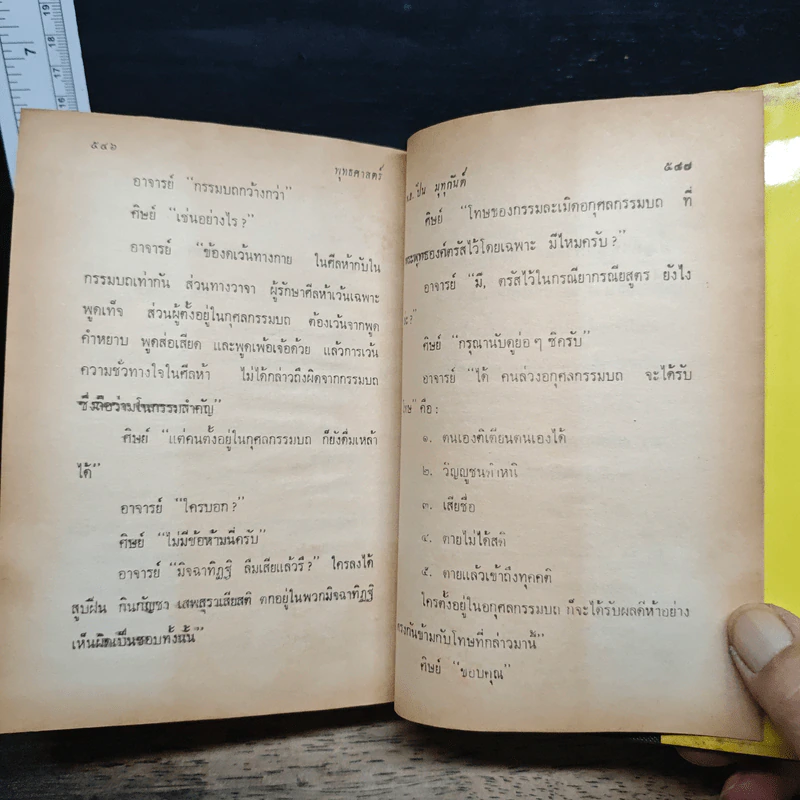 7
19
18
17
16
๕๔๖
พุทธศาสตร์
อาจารย์ “กรรมบถกว้างกว่า”
ศิษย์ “เช่นอย่างไร ?”
อาจารย์ “ข้องดเว้นทางกาย ในศีลห้ากับใน
กรรมบถเท่ากัน ส่วนทางวาจา ผู้รักษาศีลห้าเว้นเฉพาะ
พูดเท็จ ส่วนผู้ตั้งอยู่ในกุศลกรรมบถ ต้องเว้นจากพูด
คำหยาบ พูดส่อเสียด และพูดเพ้อเจ้อด้วย แล้วการเว้น
ความชั่วทางใจในศีลห้า ไม่ได้กล่าวถึงผิดจากกรรมบถ
ซึ่งถือว่ามโนกรรมสำคัญ”
ศิษย์ “แต่คนตั้งอยู่ในกุศลกรรมบถ ก็ยังดื่มเหล้า
ได้”
อาจารย์ “ใครบอก ?”
ศิษย์ “ไม่มีข้อห้ามนี่ครับ”
อาจารย์ “มิจฉาทิฏฐิ ลืมเสียแล้วรึ ? ใครลงได้
สูบฝิ่น กินกัญชา เสพสุราเสียสติ ตกอยู่ในพวกมิจฉาทิฏฐิ
เห็นผิดเป็นชอบทั้งนั้น”
๕๔๗
ปิ่น มุทุกันต์
ศิษย์ “โทษของกรรมละเมิดอกุศลกรรมบถ ที่
พระพุทธองค์ตรัสไว้โดยเฉพาะ มีไหมครับ ?”
อาจารย์ “มี, ตรัสไว้ในกรณียากรณียสูตร ยังไง
ล่ะ ?”
ศิษย์ “กรุณานับดูย่อ ๆ ซิครับ”
อาจารย์ “ได้ คนล่วงอกุศลกรรมบถ จะได้รับ
โทษ” คือ :
๑. ตนเองติเตียนตนเองได้
๒. วิญญูชนตำหนิ
๓. เสียชื่อ
๔. ตายไม่ได้สติ
๕. ตายแล้วเข้าถึงทุคคติ
ใครตั้งอยู่ในอกุศลกรรมบถ ก็จะได้รับผลดีห้าอย่าง
ตรงกันข้ามกับโทษที่กล่าวมานี้”
ศิษย์ “ขอบคุณ”